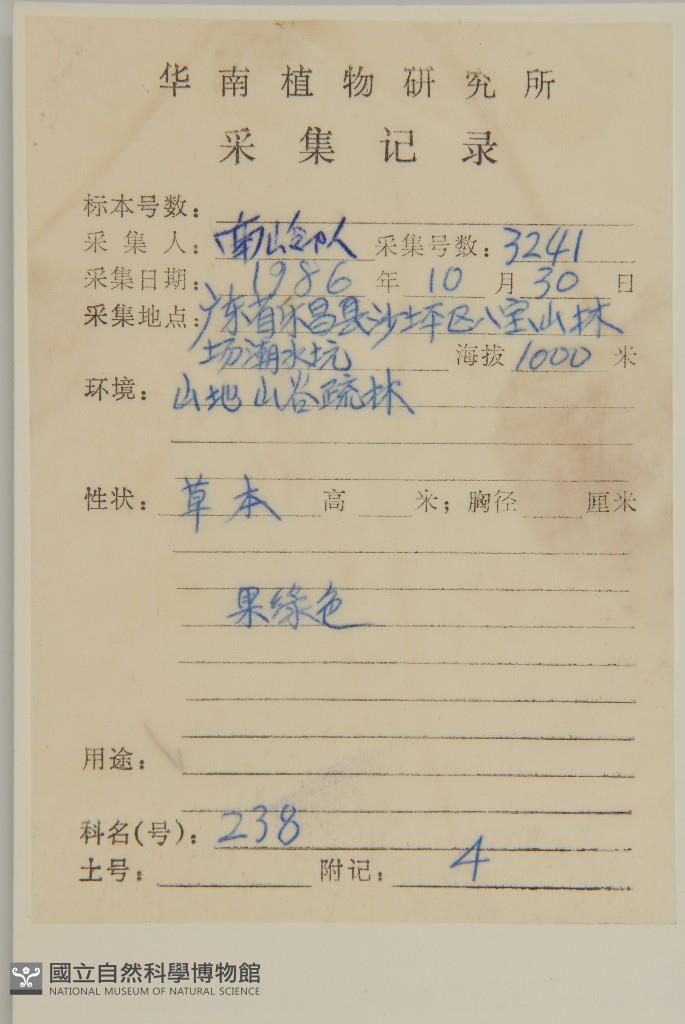 华南植物研究所
采集记录
标本号数：
采集人：南岭队 采集号数：3241
采集日期：1986年10月30日
采集地点：广东省乐昌县沙坪区八宝山林
场潮水坑 海拔1000米
环境：山地山谷疏林
性状：草本 高 米；胸径 厘米
果绿色
用途：
科名(号)：238
土号： 附记：4
國立自然科學博物館
NATIONAL MUSEUM OF NATURAL SCIENCE